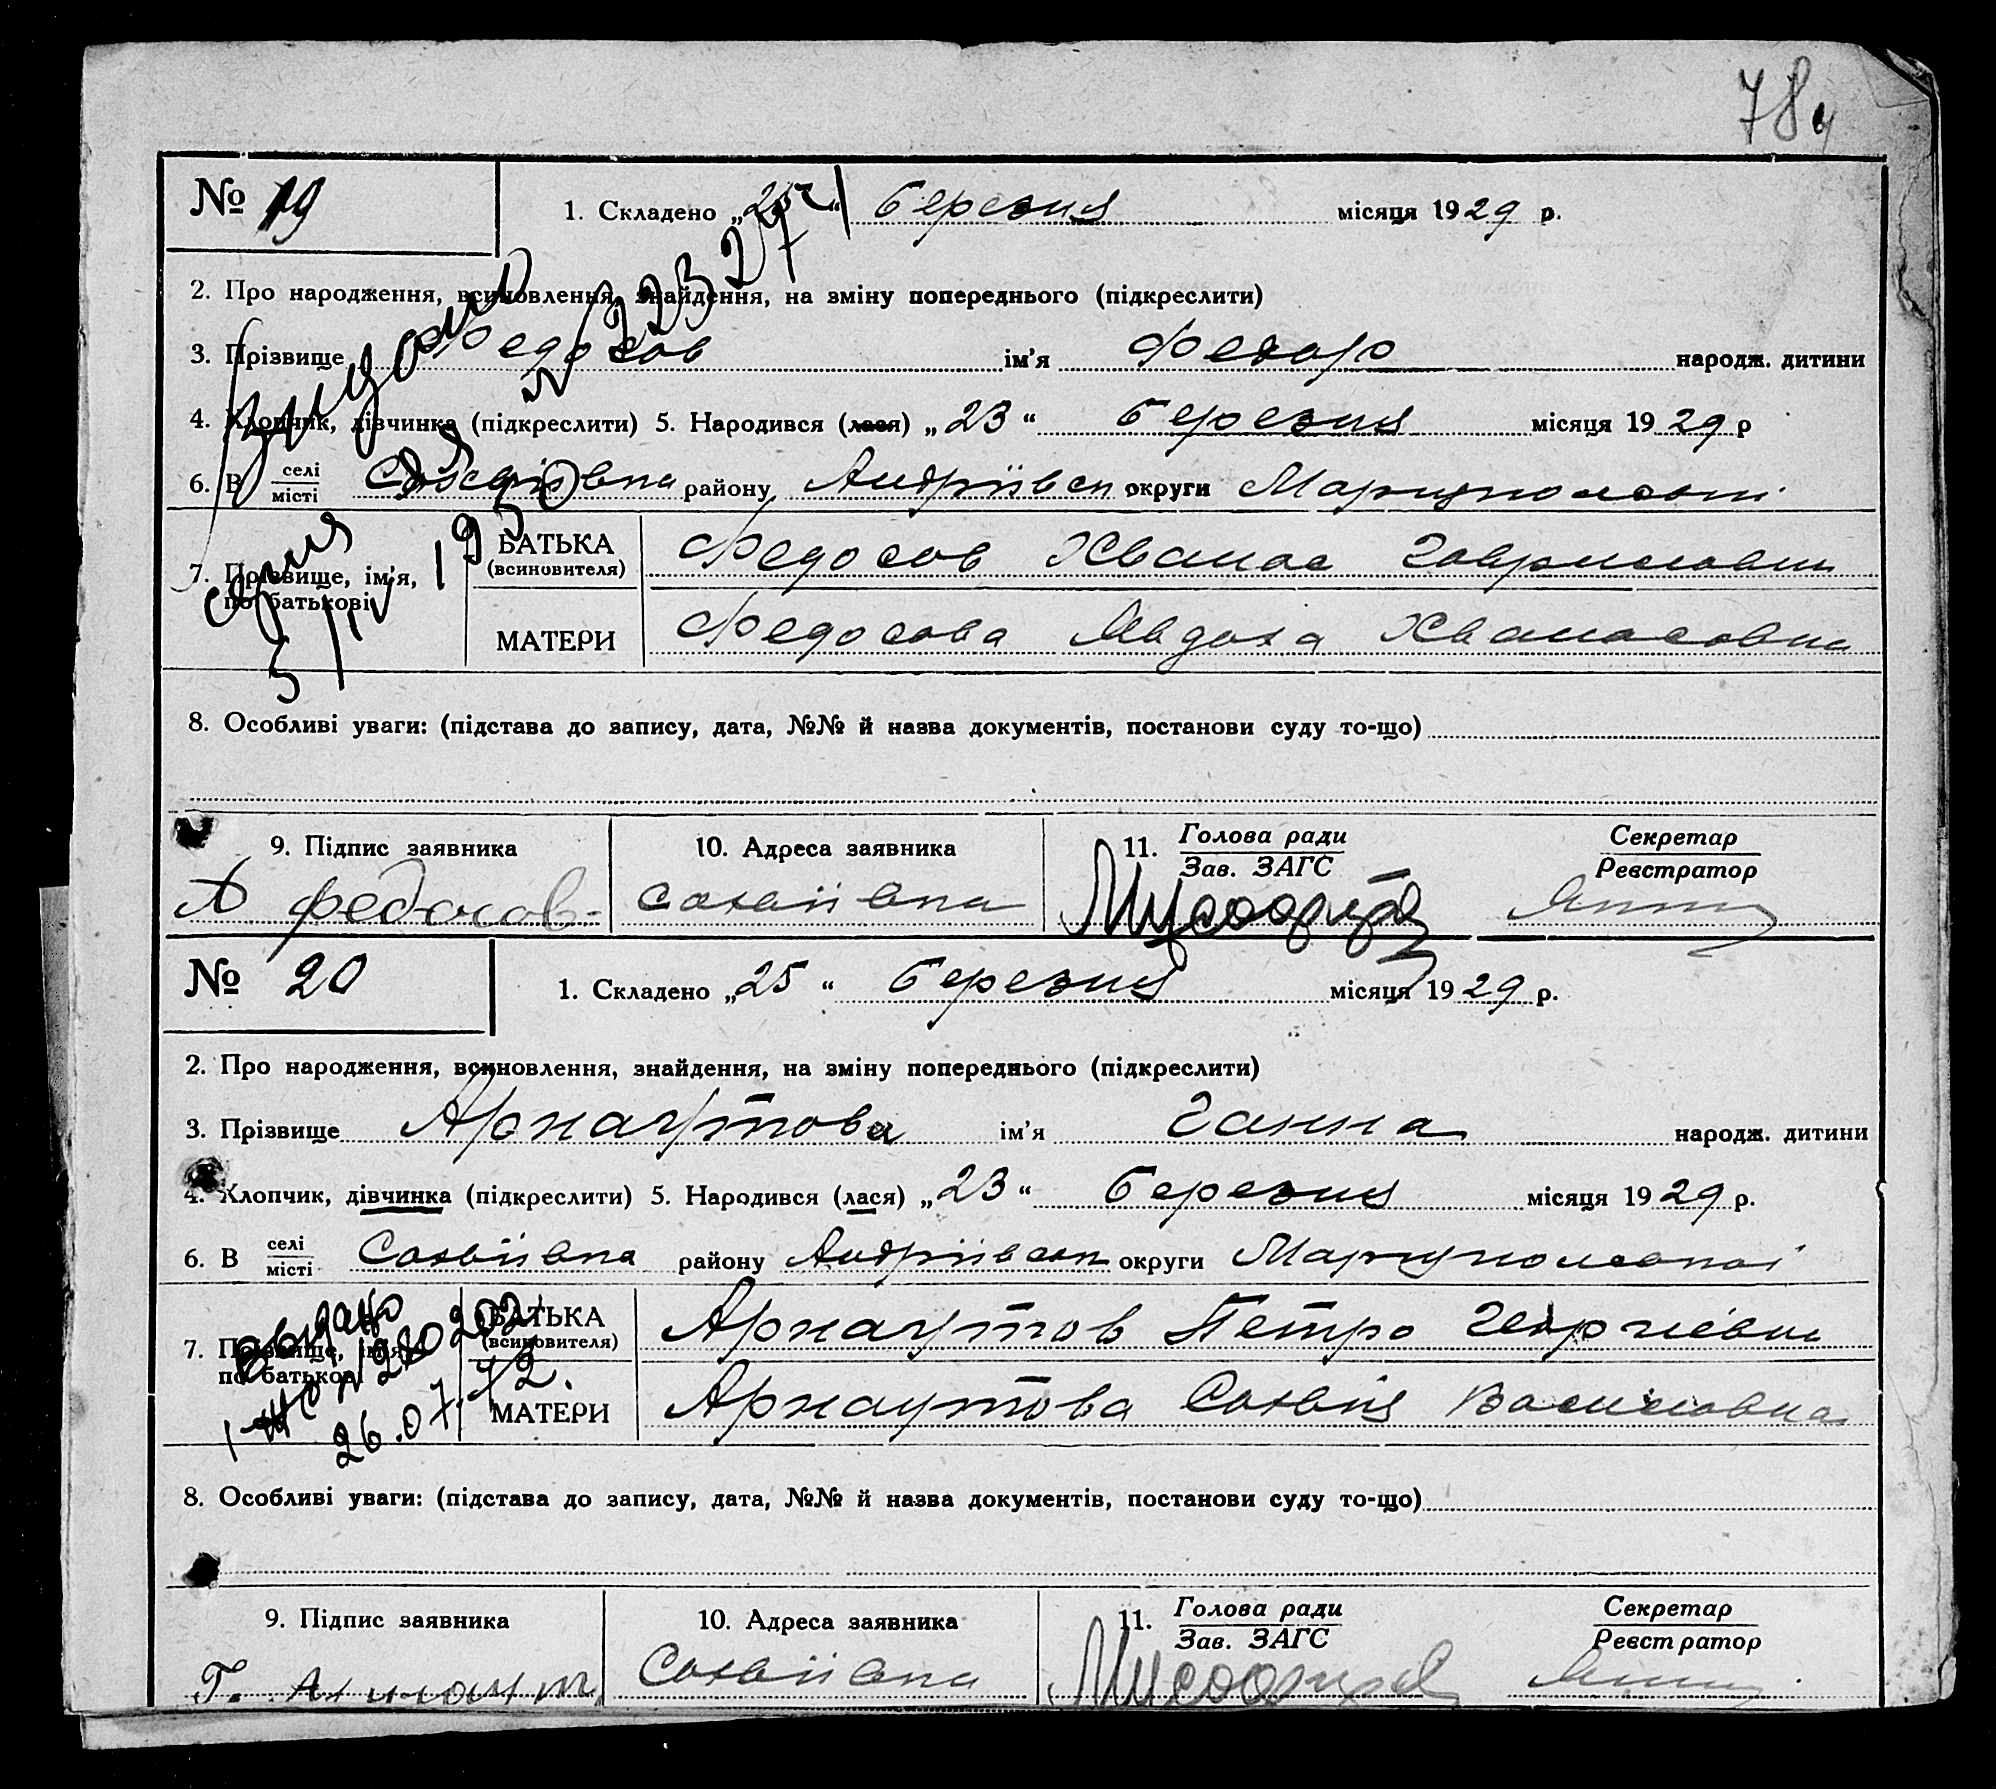 78
№ 19
1. Складено „25“ березня місяця 1929 р.
2. Про народження, всиновлення, знайдення, на зміну попереднього (підкреслити)
3. Прізвище Федосов ім'я Федор народж. дитини
4. Хлопчик, дівчинка (підкреслити) 5. Народився (лася) „23“ березня місяця 1929 р
6. В селі місті Сахвіївка району Андріївськ округи Маріупольської
7. Прізвище, ім'я, по батькові
БАТЬКА (всиновителя) Федосов Хванас Гаврилович
МАТЕРИ Федосова Явдоха Хванасовна
Видано № 22327
1950
8. Особливі уваги: (підстава до запису, дата, №№ й назва документів, постанови суду то-що)
9. Підпис заявника
10. Адреса заявника
11. Голова ради Зав. ЗАГС
Секретар Реєстратор
А Федосов
Сахвіївка
№ 20
1. Складено „25“ березня місяця 1929 р.
2. Про народження, всиновлення, знайдення, на зміну попереднього (підкреслити)
3. Прізвище Арнаутова ім'я Ганна народж. дитини
4. Хлопчик, дівчинка (підкреслити) 5. Народився (лася) „23“ березня місяця 1929 р.
6. В селі місті Сахвіївка району Андріївськ округи Маріупольскої
7. Прізвище, ім'я, по батькові
БАТЬКА (всиновителя) Арнаутов Петро Георгієвич
МАТЕРИ Арнаутова Сахвія Василовна
Выдано
26.07.72.
8. Особливі уваги: (підстава до запису, дата, №№ й назва документів, постанови суду то-що)
9. Підпис заявника
10. Адреса заявника
11. Голова ради Зав. ЗАГС
Секретар Реєстратор
Сахвіївка